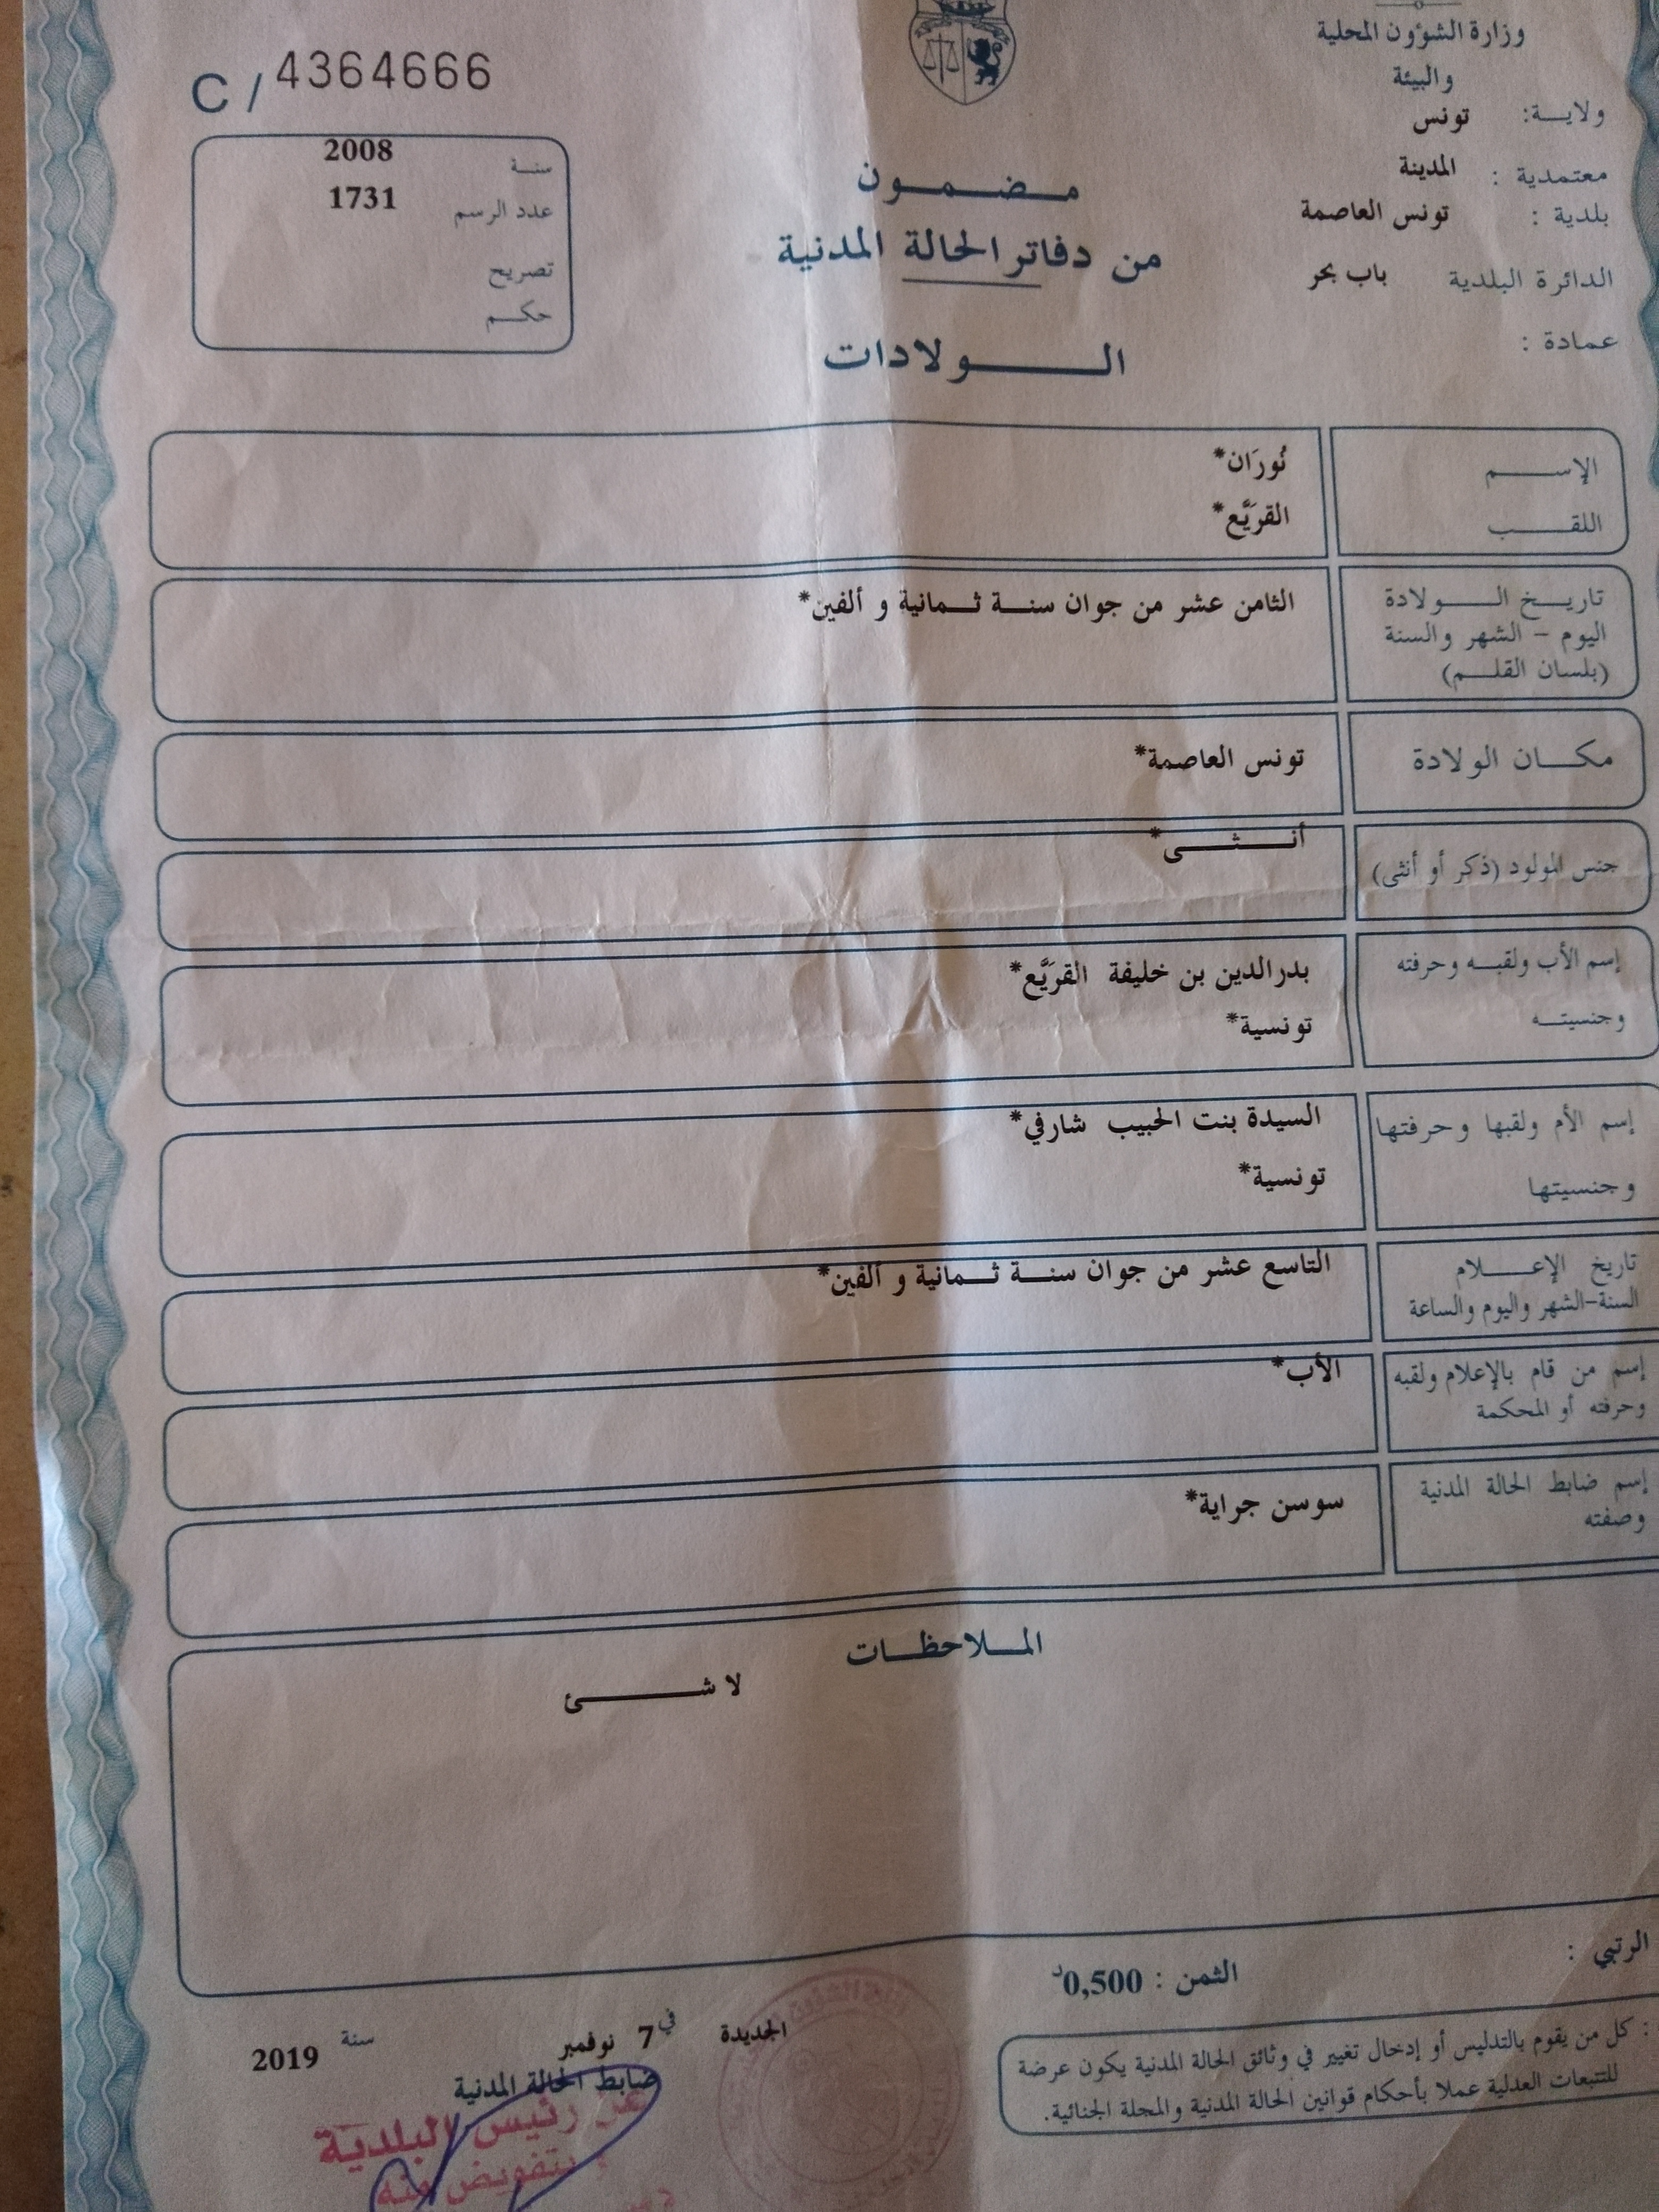 وزارة الشؤون المحلية
والبيئة
ولايـــة: تونس
معتمدية : المدينة
بلدية : تونس العاصمة
الدائرة البلدية باب بحر
عمادة :
مـــضـــمـــون
من دفاتر الحالة المدنية
الـــــولادات
C / 4364666
سنـة 2008
عدد الرسم 1731
تصريح
حكـم
الإســـــم نُورَان*
اللقـــب القرَيَّع*
تاريــخ الـــولادة الثامن عشر من جوان سنـــة ثـــمانية و ألفين*
اليوم – الشهر والسنة
(بلسان القلـــم)
مكـــان الولادة تونس العاصمة*
جنس المولود (ذكر أو أنثى) أنـــثـــى*
إسم الأب ولقبـــه وحرفته بدرالدين بن خليفة القرَيَّع*
وجنسيتـــه تونسية*
إسم الأم ولقبها وحرفتها السيدة بنت الحبيب شارفي*
وجنسيتها تونسية*
تاريخ الإعـــــلام التاسع عشر من جوان سنـــة ثـــمانية و ألفين*
السنة-الشهر واليوم والساعة
إسم من قام بالإعلام ولقبه الأب*
وحرفته أو المحكمة
إسم ضابط الحالة المدنية سوسن جراية*
وصفته
المـــلاحظـــات
لا شـــــئ
الرتبي :
الثمن : 0,500د
: كل من يقوم بالتدليس أو إدخال تغيير في وثائق الحالة المدنية يكون عرضة
للتتبعات العدلية عملا بأحكام قوانين الحالة المدنية والمجلة الجنائية.
الجديدة في 7 نوفمبر سنة 2019
ضابط الحالة المدنية
عن رئيس البلدية
بتفويض منه